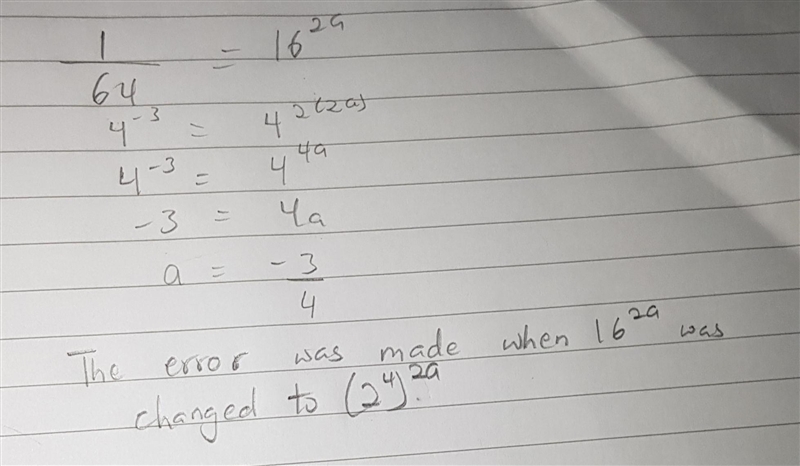 1/64 = 16^2a
4^-3 = 4^2(2a)
4^-3 = 4^4a
-3 = 4a
a = -3/4
The error was made when 16^2a was
changed to (2^4)^2a.